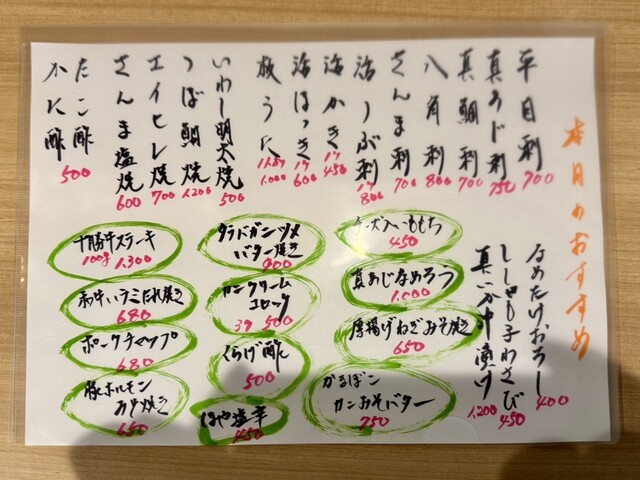 本日のおすすめ
平目刺 700
真あじ刺 750
真鯛刺 700
八角刺 800
さんま刺 700
活つぶ刺 1ケ 800
活かき 1ケ 450
活ほっき 1ケ 600
板うに 1,000
いわし明太焼 500
つぼ鯛焼 1,200
エイヒレ焼 700
さんま塩焼 600
たこ酢
かに酢 500
なめたけおろし 400
ししゃも子わさび 450
真いか沖漬け 1,200
チーズ入いももち
450
真あじなめろう
1,000
厚揚げねぎみそ焼き
650
がるぼー
カンみそバター
750
タラバガニツメ
バター焼き
900
カニクリーム
コロッケ
3ケ 500
くらげ酢
500
ほや塩辛
450
十勝牛ステーキ
100g 1,300
和牛ハラミたれ焼き
680
ポークチャップ
680
豚ホルモン
みそ焼き
650